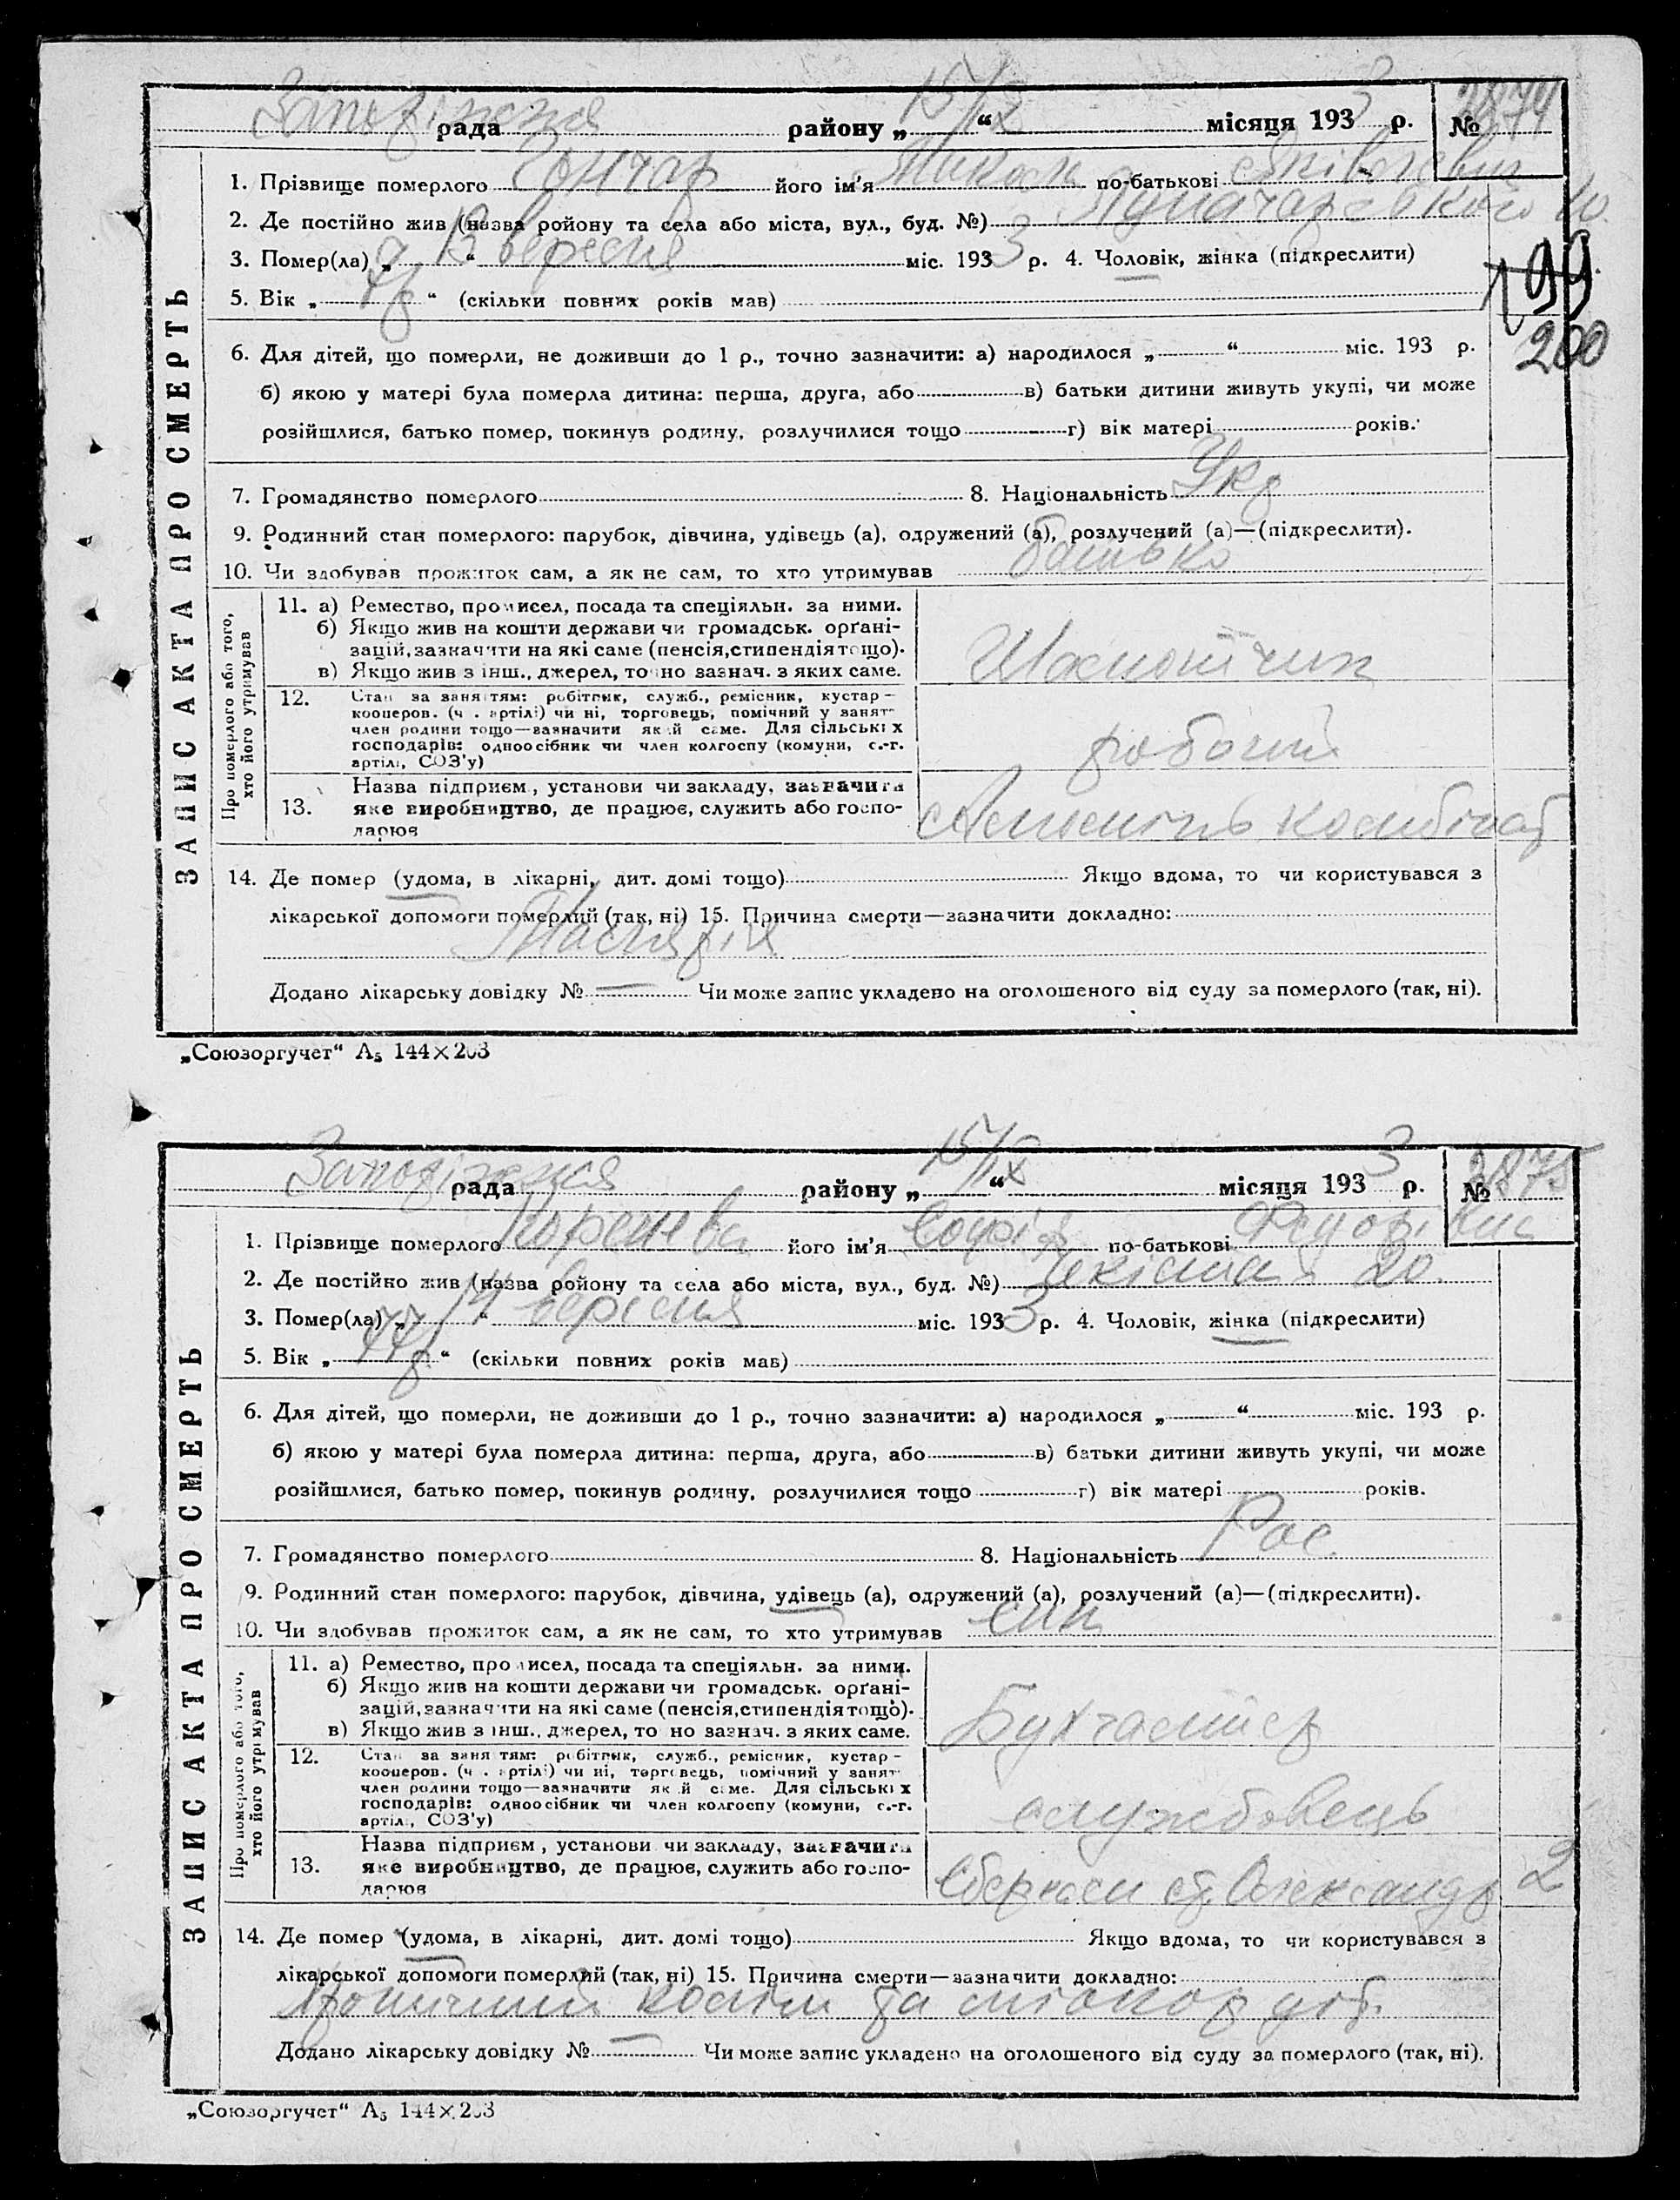 Запоріжжя рада району „ 15/IX “ місяця 1933 р. № 2874
ЗАПИС АКТА ПРО СМЕРТЬ
1. Прізвище померлого Гончар його ім'я Микола по-батькові Яківлевич
2. Де постійно жив (назва ройону та села або міста, вул., буд. №) Луначарського 10.
3. Помер(ла) „ 13 “ вересня міс. 1933 р. 4. Чоловік, жінка (підкреслити)
199
5. Вік „ “ (скільки повних років мав)
200
6. Для дітей, що померли, не доживши до 1 р., точно зазначити: а) народилося „ “ міс. 193 р.
б) якою у матері була померла дитина: перша, друга, або в) батьки дитини живуть укупі, чи може
розійшлися, батько помер, покинув родину, розлучилися тощо г) вік матері років.
7. Громадянство померлого 8. Національність Укр
9. Родинний стан померлого: парубок, дівчина, удівець (а), одружений (а), розлучений (а)—(підкреслити).
10. Чи здобував прожиток сам, а як не сам, то хто утримував батько
Про померлого або того, хто його утримував
11. а) Ремество, промисел, посада та спеціяльн. за ними.
б) Якщо жив на кошти держави чи громадськ. орґані-
зацій, зазначити на які саме (пенсія, стипендія тощо).
в) Якщо жив з інш., джерел, точно зазнач. з яких саме.
12. Стан за заняттям: робітник, служб., ремісник, кустар –
кооперов. (ч. артілі) чи ні, торговець, помічний у занят-
член родини тощо—зазначити який саме. Для сільських
господарів: одноосібник чи член колгоспу (комуни, с.-г.
артілі, СОЗ'у)
робочий
13. Назва підприєм, установи чи закладу, зазначити
яке виробництво, де працює, служить або госпо-
дарює
комбінат
14. Де помер (удома, в лікарні, дит. домі тощо) Якщо вдома, то чи користувався з
лікарської допомоги померлий (так, ні) 15. Причина смерти—зазначити докладно:
Малярія
Додано лікарську довідку № — Чи може запис укладено на оголошеного від суду за померлого (так, ні).
„Союзоргучет“ А5 144×203
Запоріжжя рада району „ 15/IX “ місяця 1933 р. № 2875
ЗАПИС АКТА ПРО СМЕРТЬ
1. Прізвище померлого Коренева його ім'я Софія по-батькові
2. Де постійно жив (назва ройону та села або міста, вул., буд. №) 20.
3. Помер(ла) „ 14 “ вересня міс. 1933 р. 4. Чоловік, жінка (підкреслити)
5. Вік „ 77р “ (скільки повних років мав)
6. Для дітей, що померли, не доживши до 1 р., точно зазначити: а) народилося „ “ міс. 193 р.
б) якою у матері була померла дитина: перша, друга, або в) батьки дитини живуть укупі, чи може
розійшлися, батько помер, покинув родину, розлучилися тощо г) вік матері років.
7. Громадянство померлого 8. Національність Рос.
9. Родинний стан померлого: парубок, дівчина, удівець (а), одружений (а), розлучений (а)—(підкреслити).
10. Чи здобував прожиток сам, а як не сам, то хто утримував син
Про померлого або того, хто його утримував
11. а) Ремество, промисел, посада та спеціяльн. за ними.
б) Якщо жив на кошти держави чи громадськ. орґані-
зацій, зазначити на які саме (пенсія, стипендія тощо).
в) Якщо жив з інш., джерел, точно зазнач. з яких саме.
Бухгалтер
12. Стан за заняттям: робітник, служб., ремісник, кустар –
кооперов. (ч. артілі) чи ні, торговець, помічний у занят-
член родини тощо—зазначити який саме. Для сільських
господарів: одноосібник чи член колгоспу (комуни, с.-г.
артілі, СОЗ'у)
службовець
13. Назва підприєм, установи чи закладу, зазначити
яке виробництво, де працює, служить або госпо-
дарює
Сберкаси ст. Олександр 2
14. Де помер (удома, в лікарні, дит. домі тощо) Якщо вдома, то чи користувався з
лікарської допомоги померлий (так, ні) 15. Причина смерти—зазначити докладно:
Хронічний коліт та міокардіт.
Додано лікарську довідку № — Чи може запис укладено на оголошеного від суду за померлого (так, ні).
„Союзоргучет“ А5 144×203